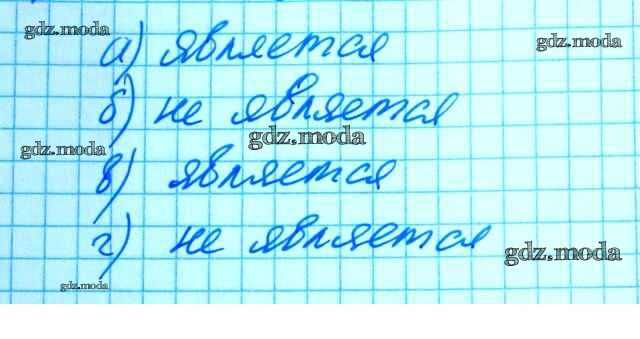 gdz.moda
а) является
gdz.moda
б) не является
gdz.moda
gdz.moda
в) является
г) не является
gdz.moda
gdz.moda